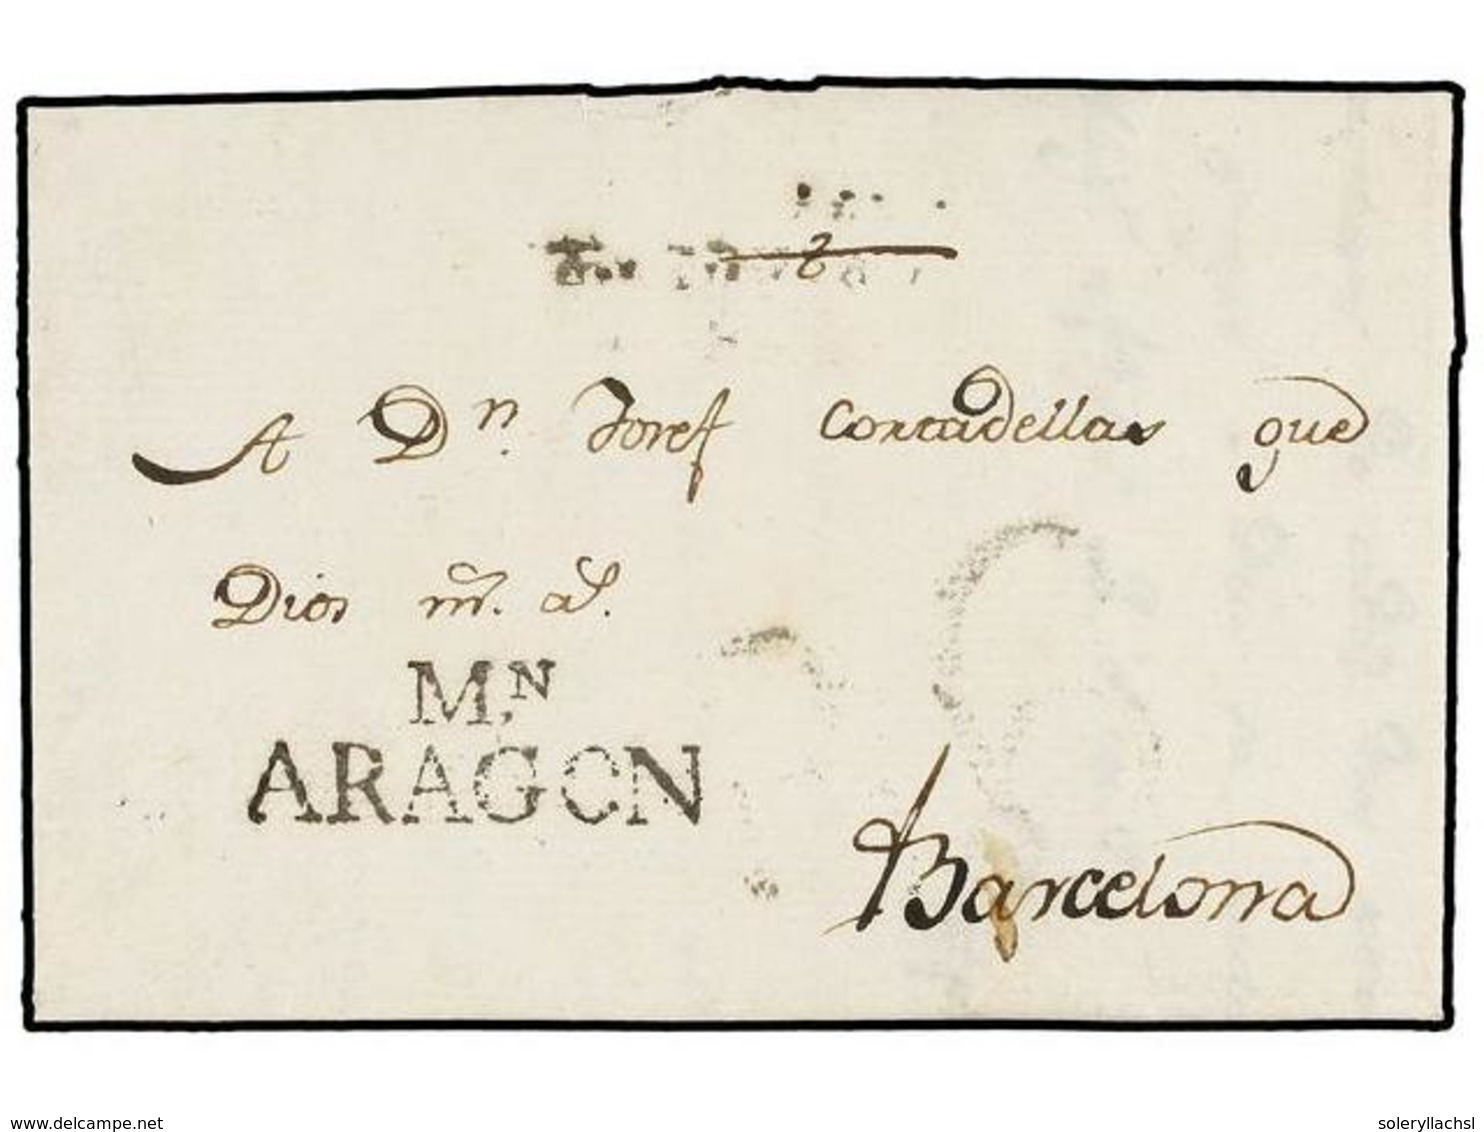 A Dn. Josef Cortadellas que
Dios m. as.
M,N
ARAGON
6
Barcelona
www.delcampe.net
soleryllachsl